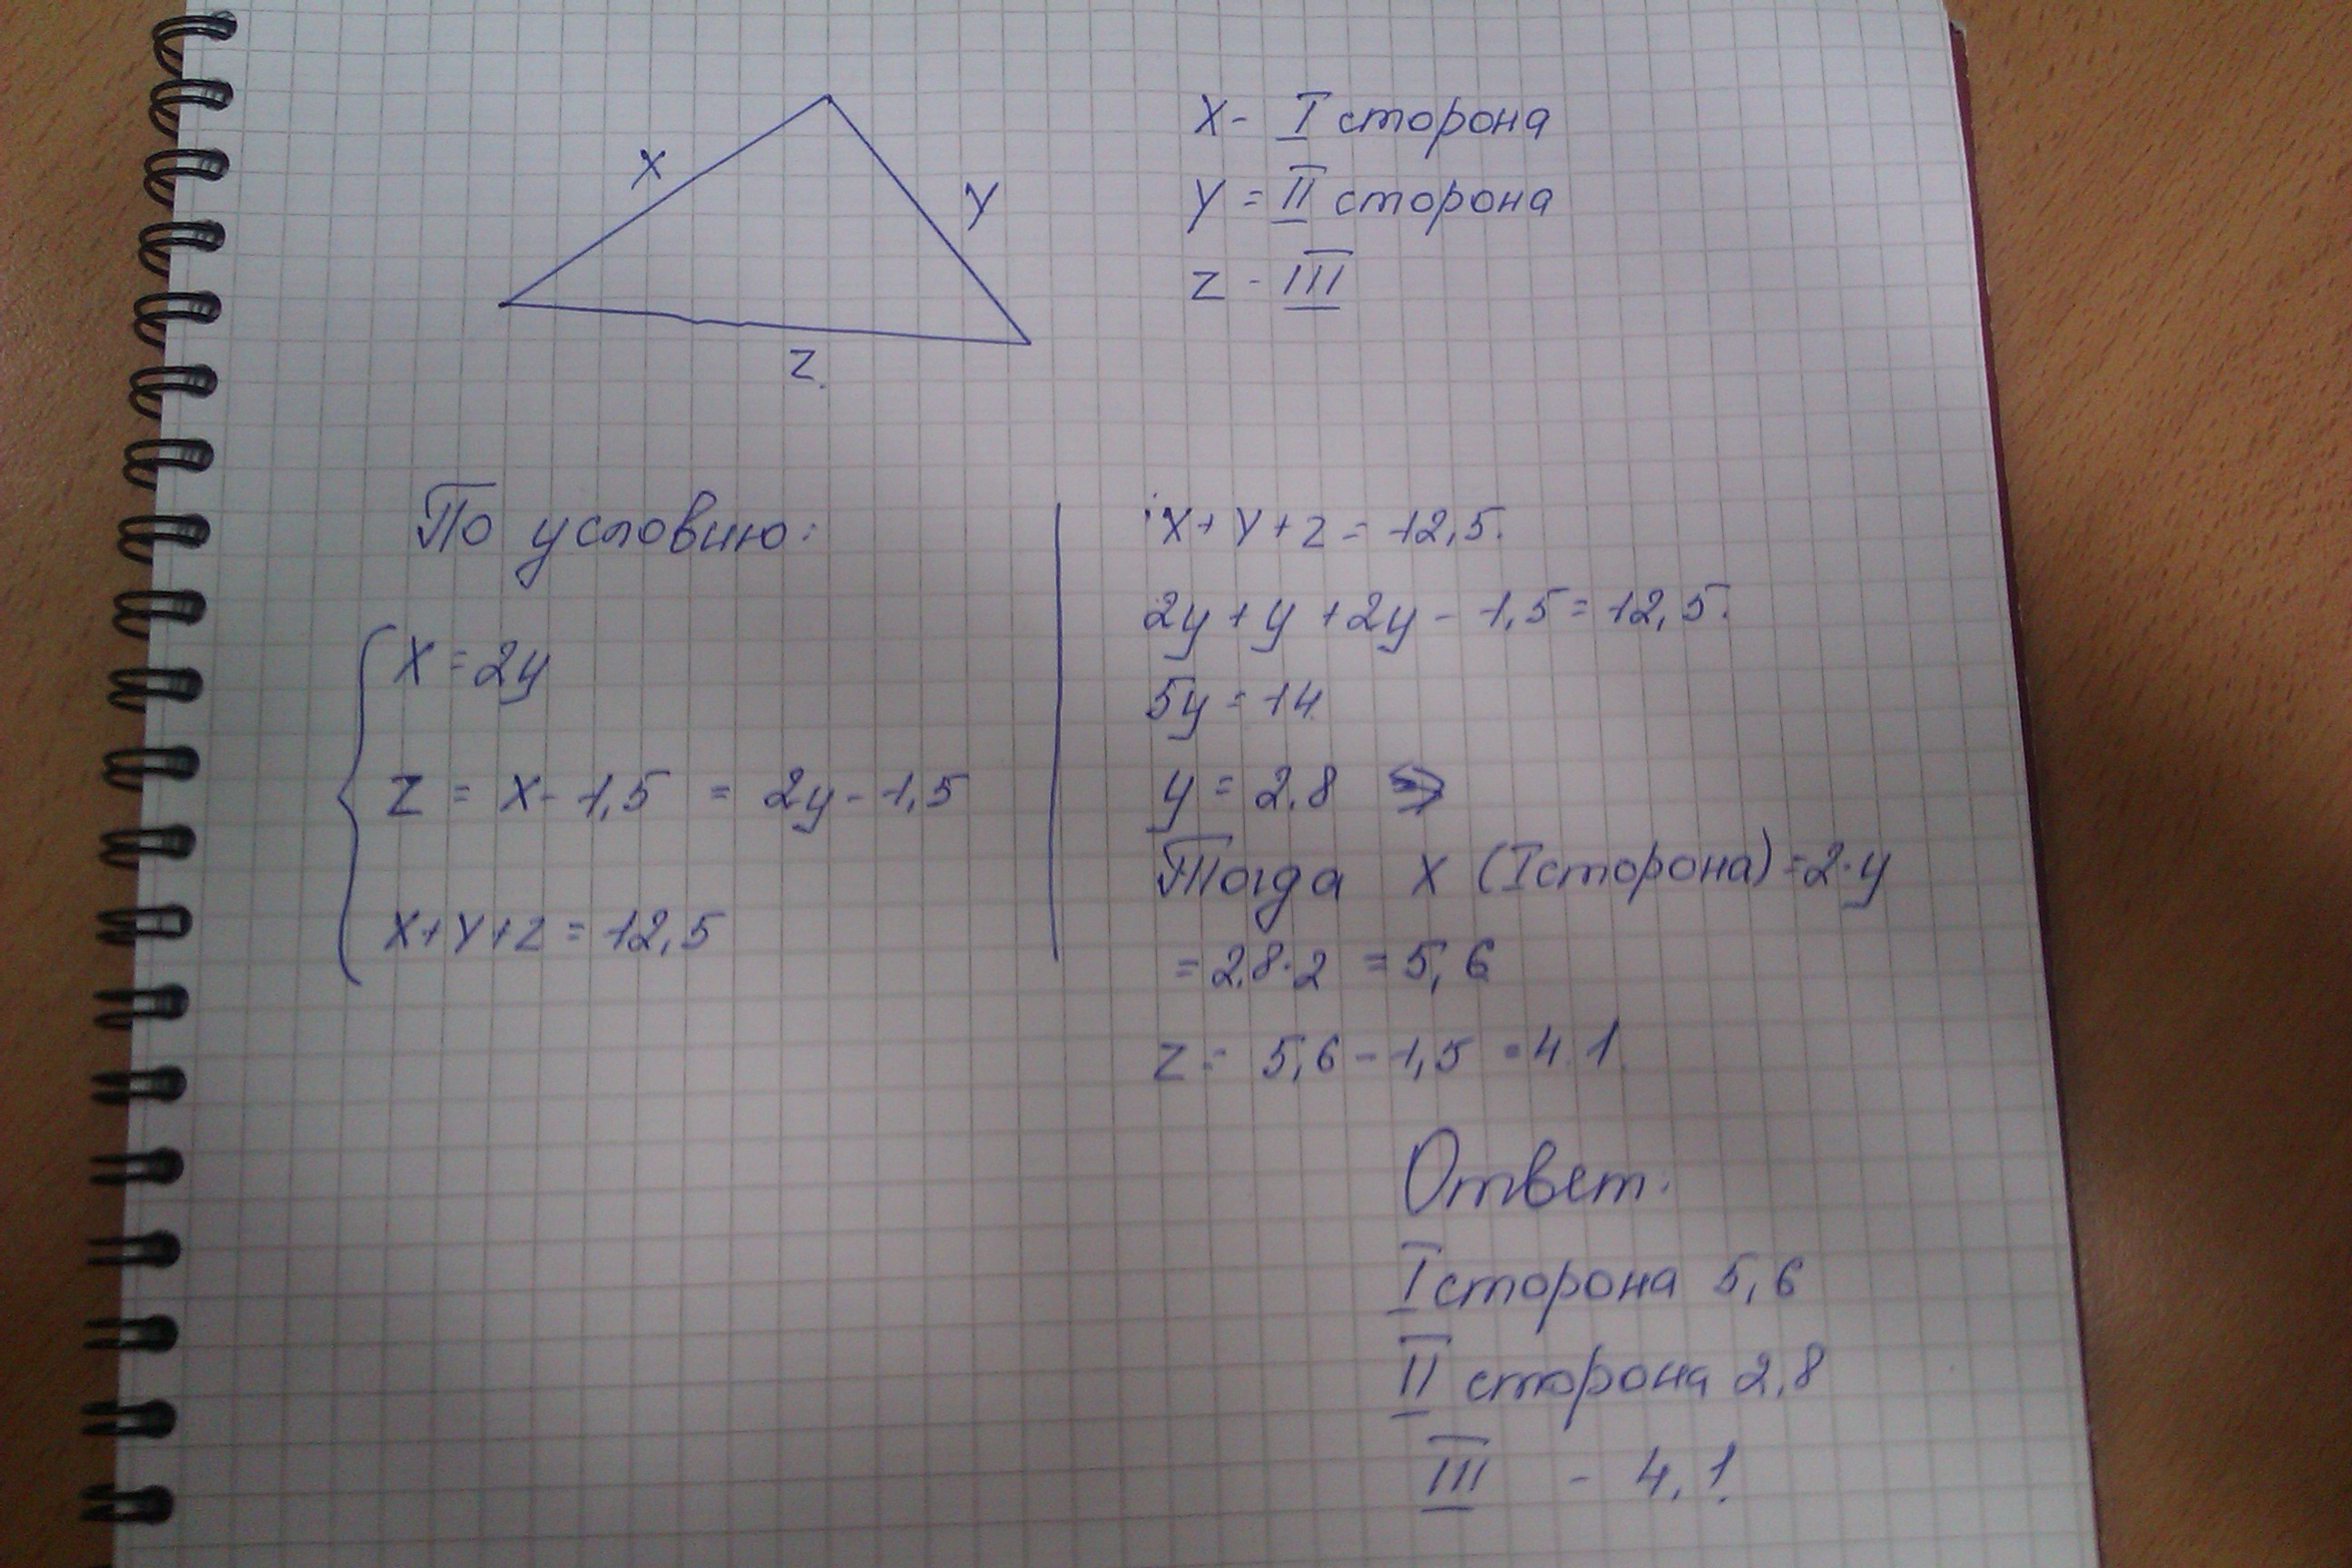 x
y
z
x - I сторона
y = II сторона
z - III
По условию:
x = 2y
z = x - 1,5 = 2y - 1,5
x + y + z = 12,5
x + y + z = 12,5.
2y + y + 2y - 1,5 = 12,5.
5y = 14
y = 2.8 ⇒
Тогда x (I сторона) = 2·y
= 2.8·2 = 5,6
z = 5,6 - 1,5 = 4.1.
Ответ:
I сторона 5,6
II сторона 2,8
III - 4,1.